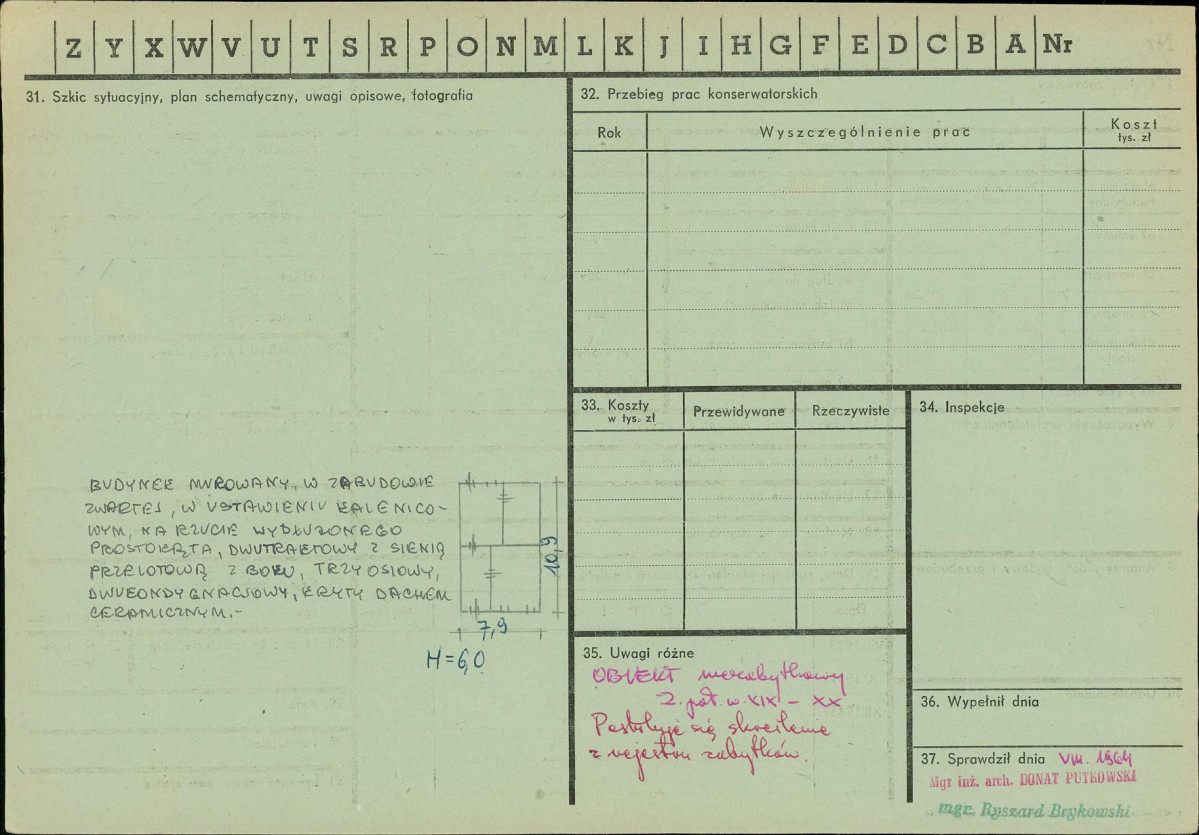 Z Y X W V U T S R P O N M L K J I H G F E D C B A Nr
31. Szkic sytuacyjny, plan schematyczny, uwagi opisowe, fotografia
BUDYNEK MUROWANY, W ZABUDOWIE
ZWARTEJ, W USTAWIENIU KALENICO-
WYM, NA RZUCIE WYDŁUŻONEGO
PROSTOKĄTA, DWUTRAKTOWY Z SIENIĄ
PRZELOTOWĄ Z BOKU, TRZY OSIOWY,
DWUKONDYGNACJOWY, KRYTY DACHEM
CERAMICZNYM.-
10,9
7,9
H=6,0
32. Przebieg prac konserwatorskich
Rok Wyszczególnienie prac Koszt
tys. zł
33. Koszty
w tys. zł
Przewidywane Rzeczywiste
34. Inspekcje
35. Uwagi różne
OBIEKT niezabytkowy
2. poł. w. XIX – XX
Postuluje się skreślenie
z rejestru zabytków.
36. Wypełnił dnia
37. Sprawdził dnia VIII. 1964
Mgr inż. arch. DONAT PUTKOWSKI
mgr. Ryszard Brykowski